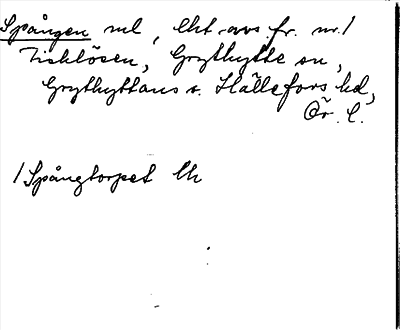 Spången ml, lht avs. fr. nr. 1
Fisklösen, Grythytte sn,
Grythyttans o. Hällefors hd,
Ör. l.
1 Spångtorpet lh